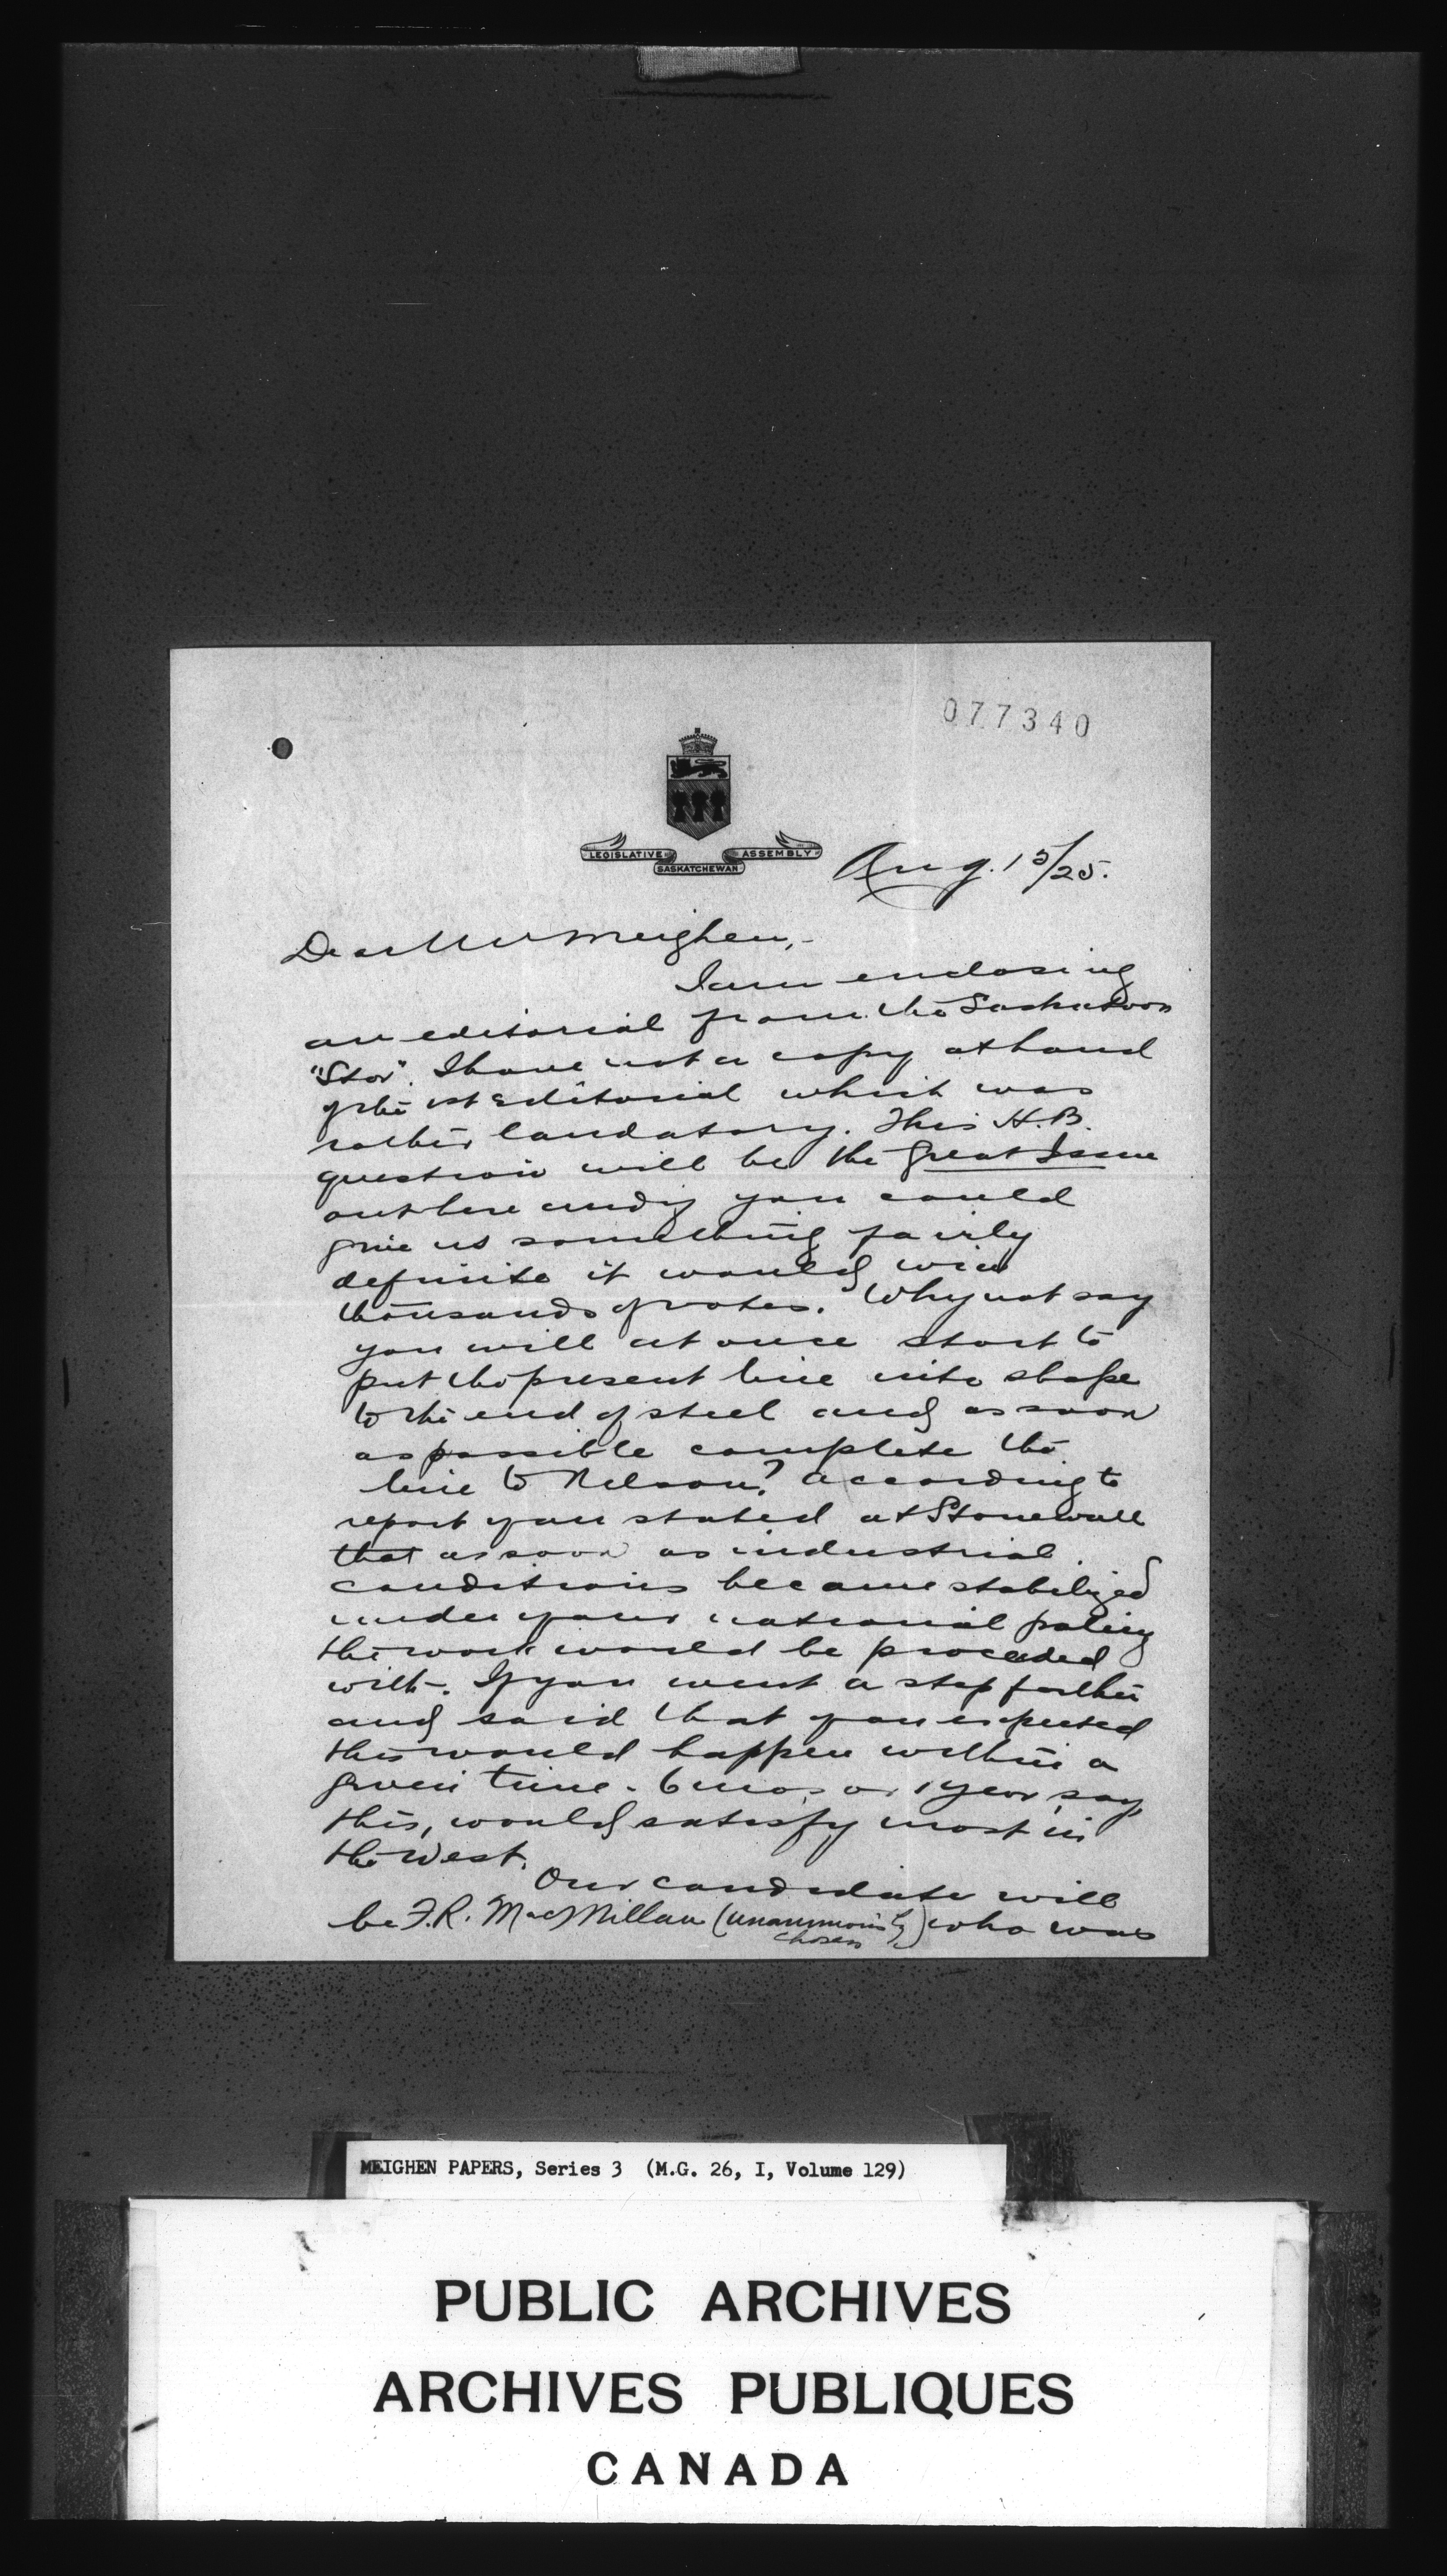 077340
LEGISLATIVE ASSEMBLY
SASKATCHEWAN
Aug. 15/25.
Dear Mr Meighen,-
I am enclosing
an editorial from the Saskatoon
"Star". I have not a copy at hand
of the 1st editorial which was
rather laudatory. This H.B.
question will be the Great Issue
out here and if you could
give us something fairly
definite it would win
thousands of votes. Why not say
you will at once start to
put the present line into shape
to the end of steel and as soon
as possible complete the
line to Nelson? According to
report you stated at Stonewall
that as soon as industrial
conditions became stabilized
under your national policy
the work would be proceeded
with. If you went a step further
and said that you expected
this would happen within a
given time - 6 mos. or 1 year say,
this, would satisfy most in
the West.
Our candidate will
be F.R. MacMillan (unanimously chosen) who was
MEIGHEN PAPERS, Series 3 (M.G. 26, I, Volume 129)
PUBLIC ARCHIVES
ARCHIVES PUBLIQUES
CANADA